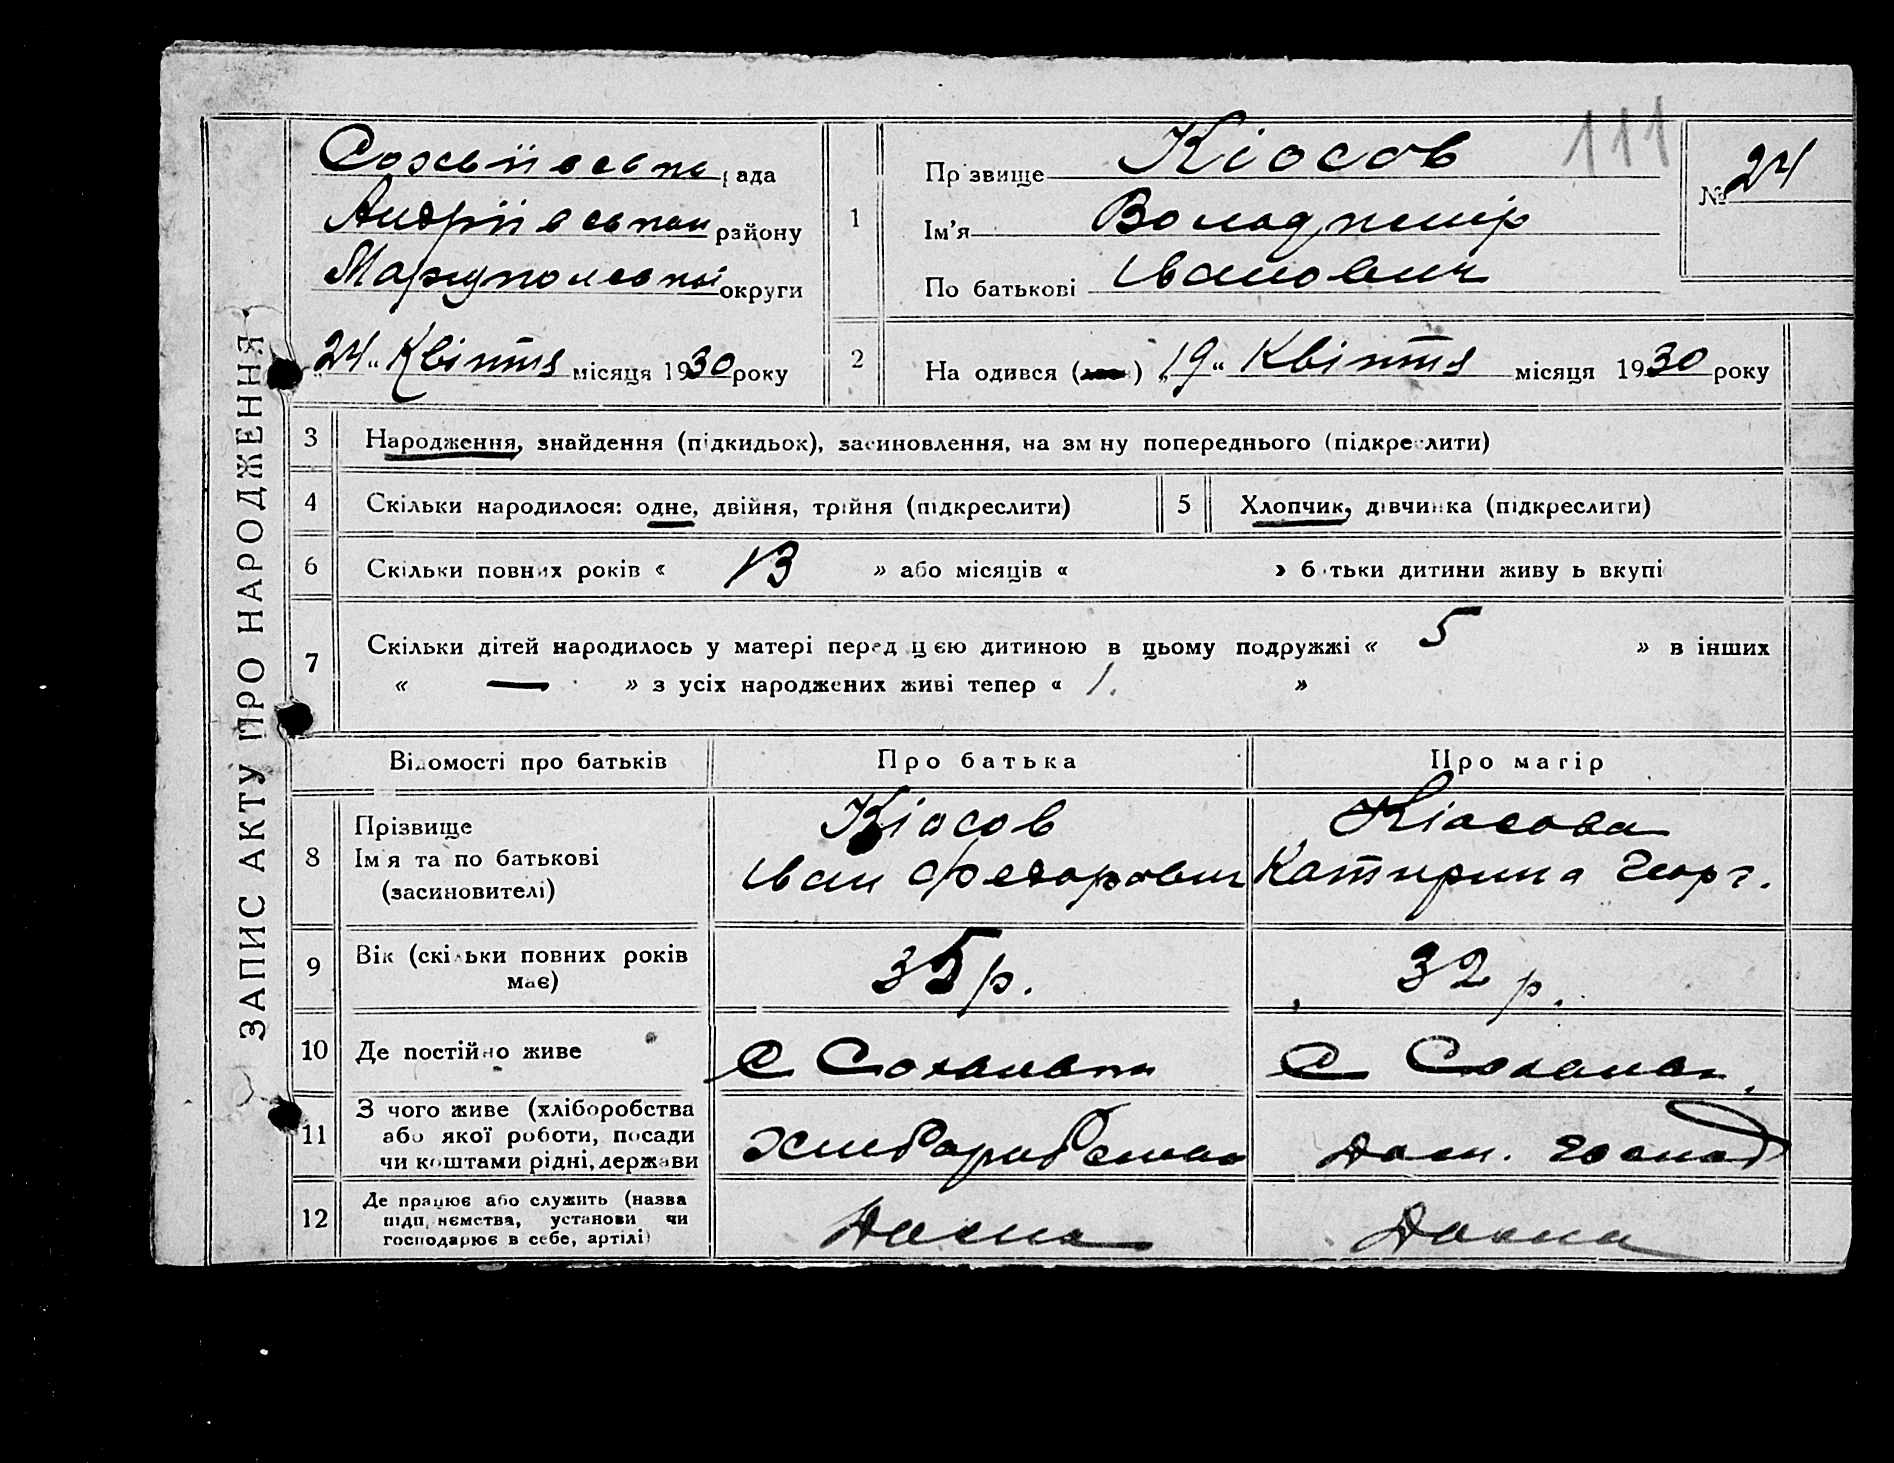 ЗАПИС АКТУ ПРО НАРОДЖЕННЯ
111
рада
Андріївськ району
Маріупольськ округи
„24“ Квітня місяця 1930 року
№ 24
1
Прізвище Кіосов
Ім’я Володимір
По батькові Іванович
2
На одився ( ) „19“ Квітня місяця 1930 року
3 Народження, знайдення (підкидьок), засиновлення, на зм ну попереднього (підкреслити)
4 Скільки народилося: одне, двійня, трійня (підкреслити)
5 Хлопчик, дівчинка (підкреслити)
6 Скільки повних років « 13 » або місяців « » б тьки дитини живу ь вкупі
7 Скільки дітей народилось у матері перед цією дитиною в цьому подружжі « 5 » в інших
« — » з усіх народжених живі тепер « 1. »
Відомості про батьків Про батька Про матір
8 Прізвище
Ім я та по батькові
(засиновителі)
Кіосов
Іван Федорович
Кіосова
Катирина Георг.
9 Вік (скільки повних років
має)
35 р.
32 р.
10 Де постійно живе
С
С
11 З чого живе (хліборобства
або якої роботи, посади
чи коштами рідні, держави
Хліборобство
Дом. господ
12 Де працює або служить (назва
підп ємства, установи чи
господарює в себе, артілі)